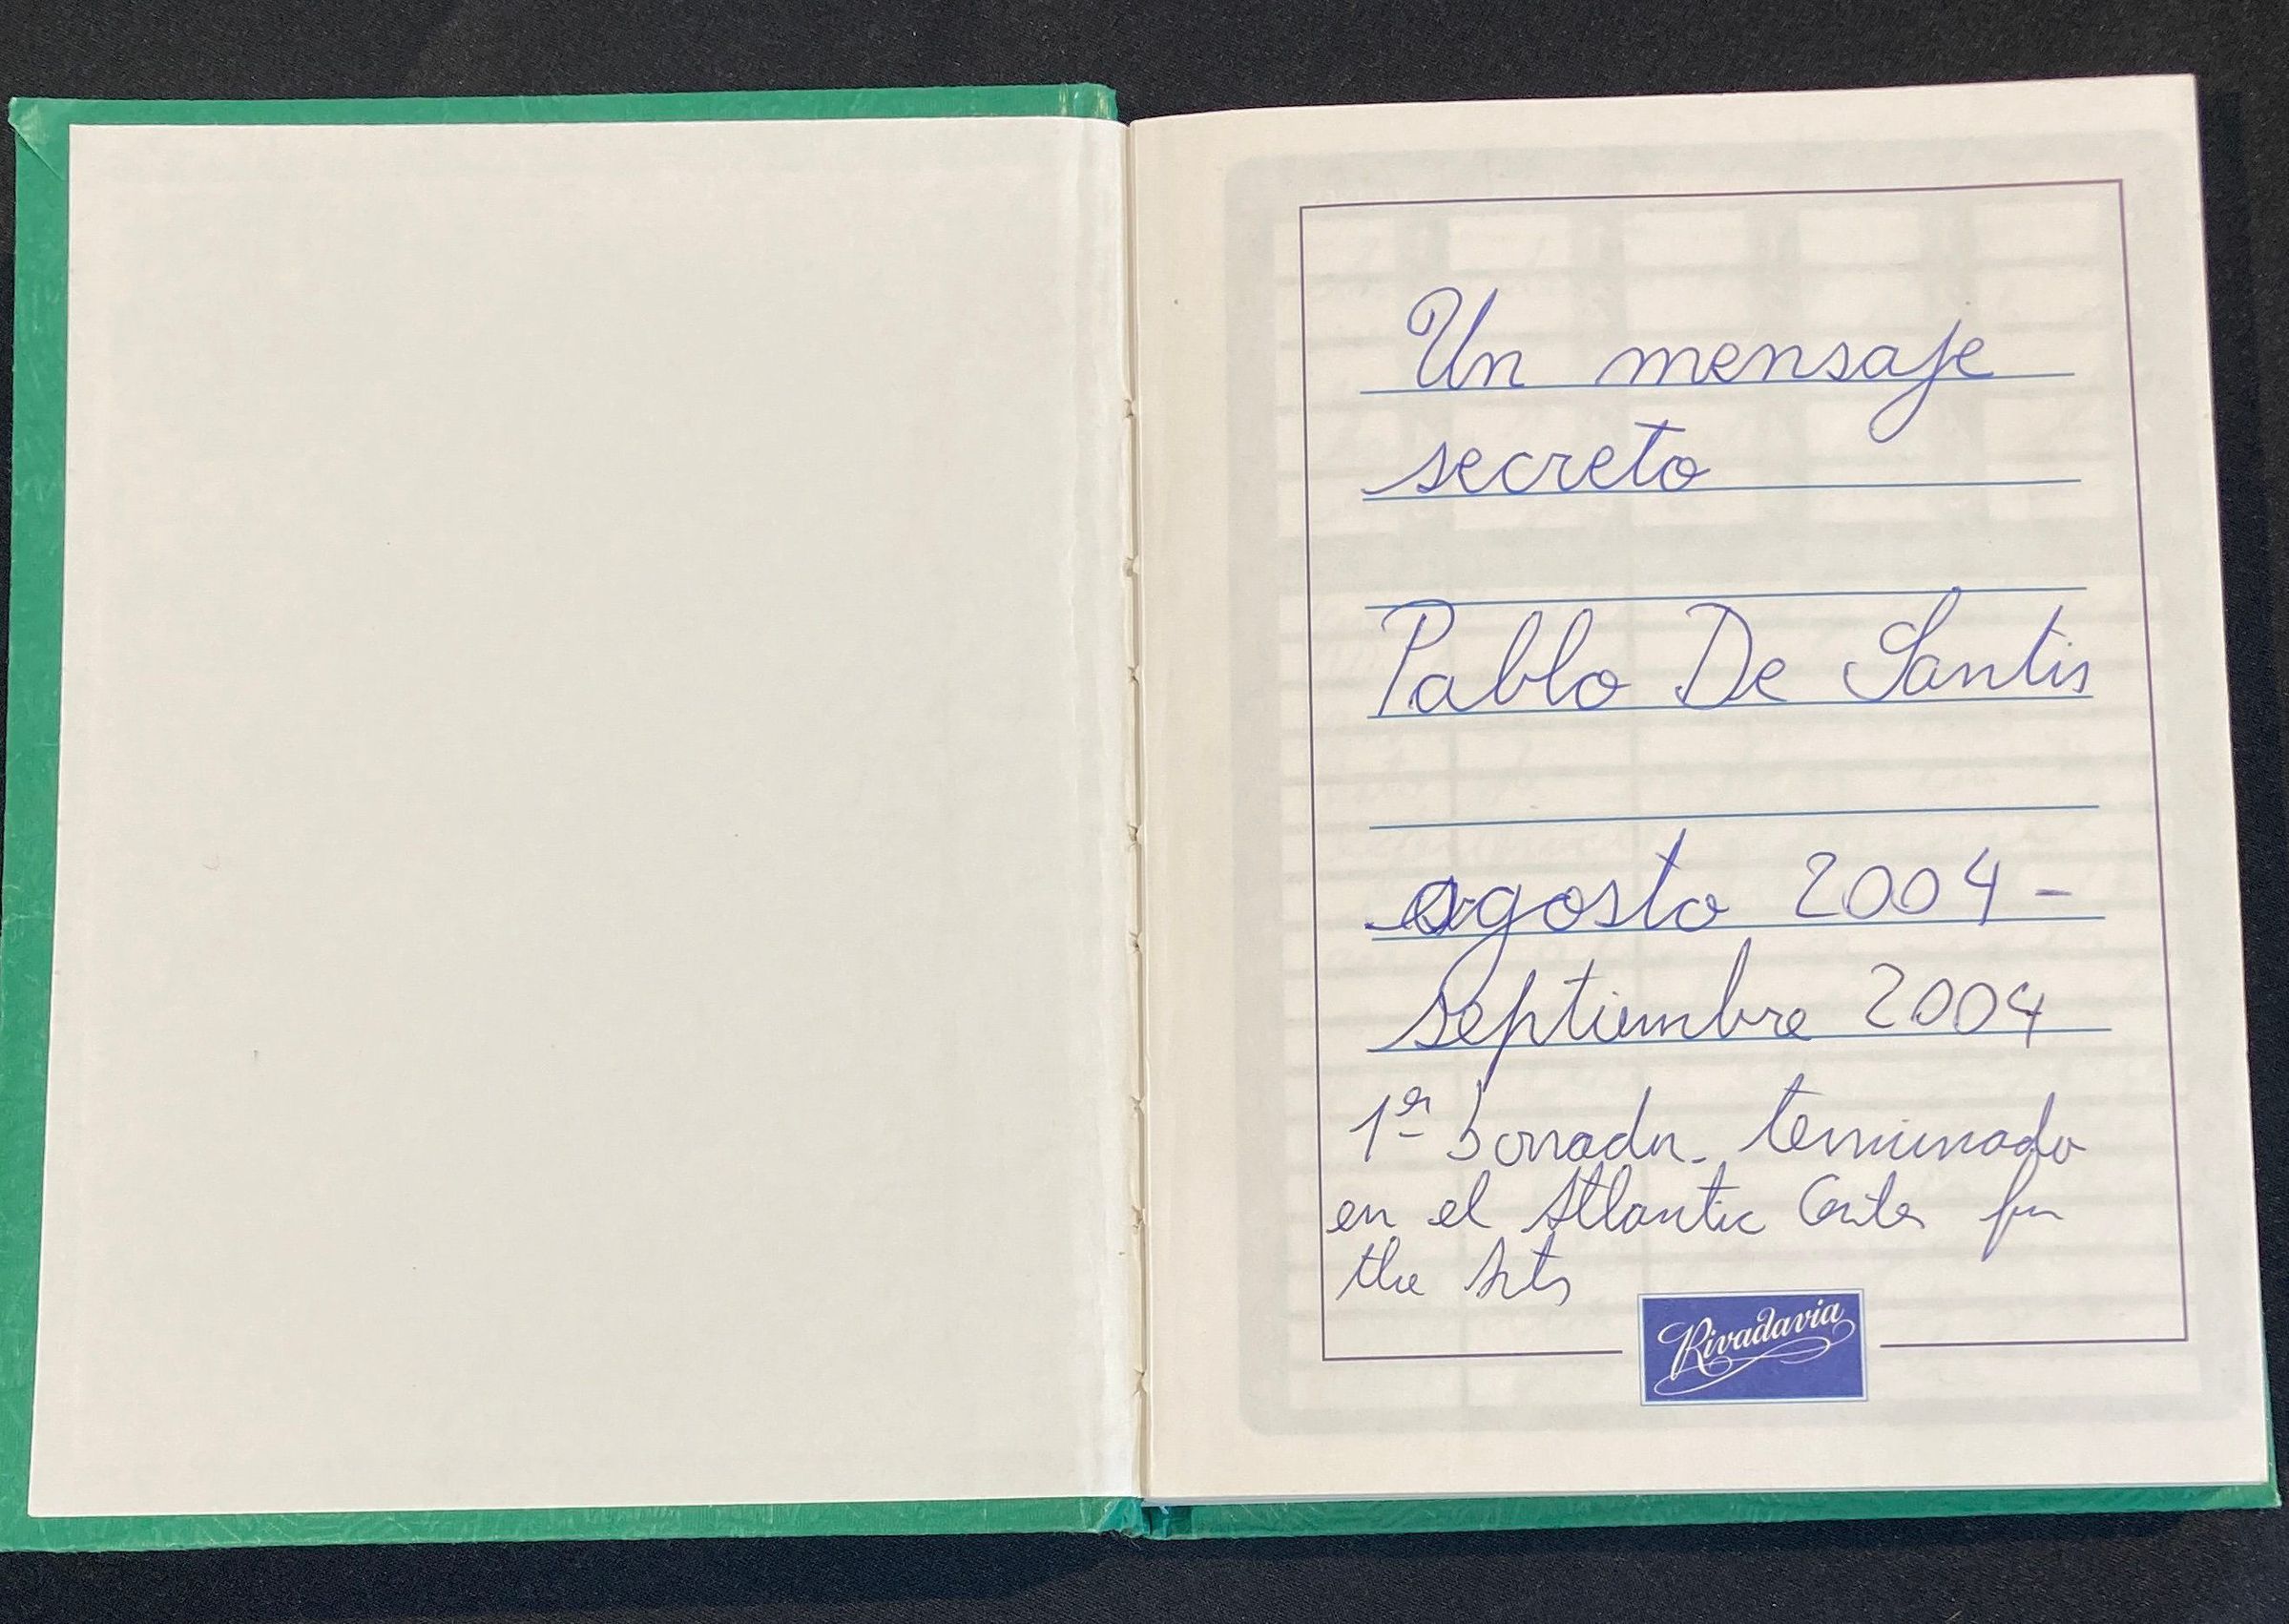 Un mensaje
secreto
Pablo De Santis
agosto 2004 -
septiembre 2004
1er borrador. terminado
en el Atlantic Center for
the Arts
Rivadavia